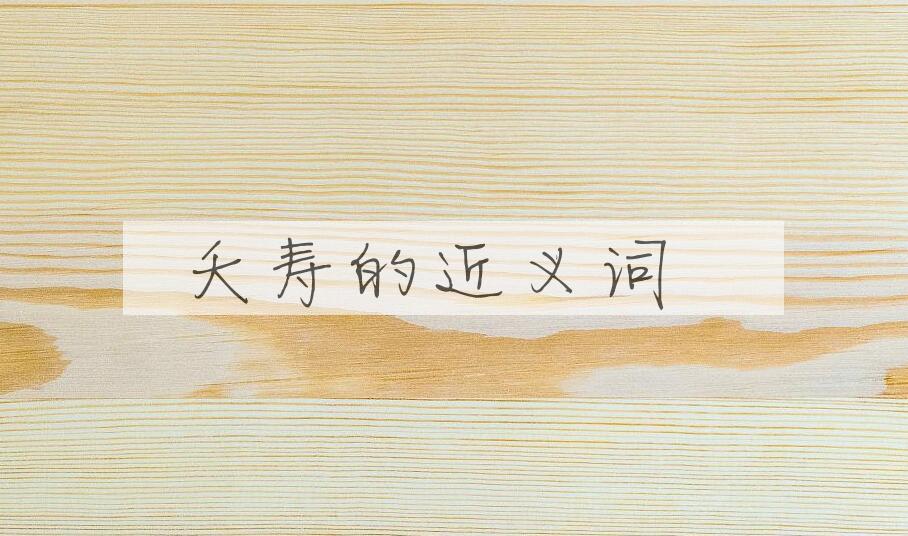 夭寿的近义词